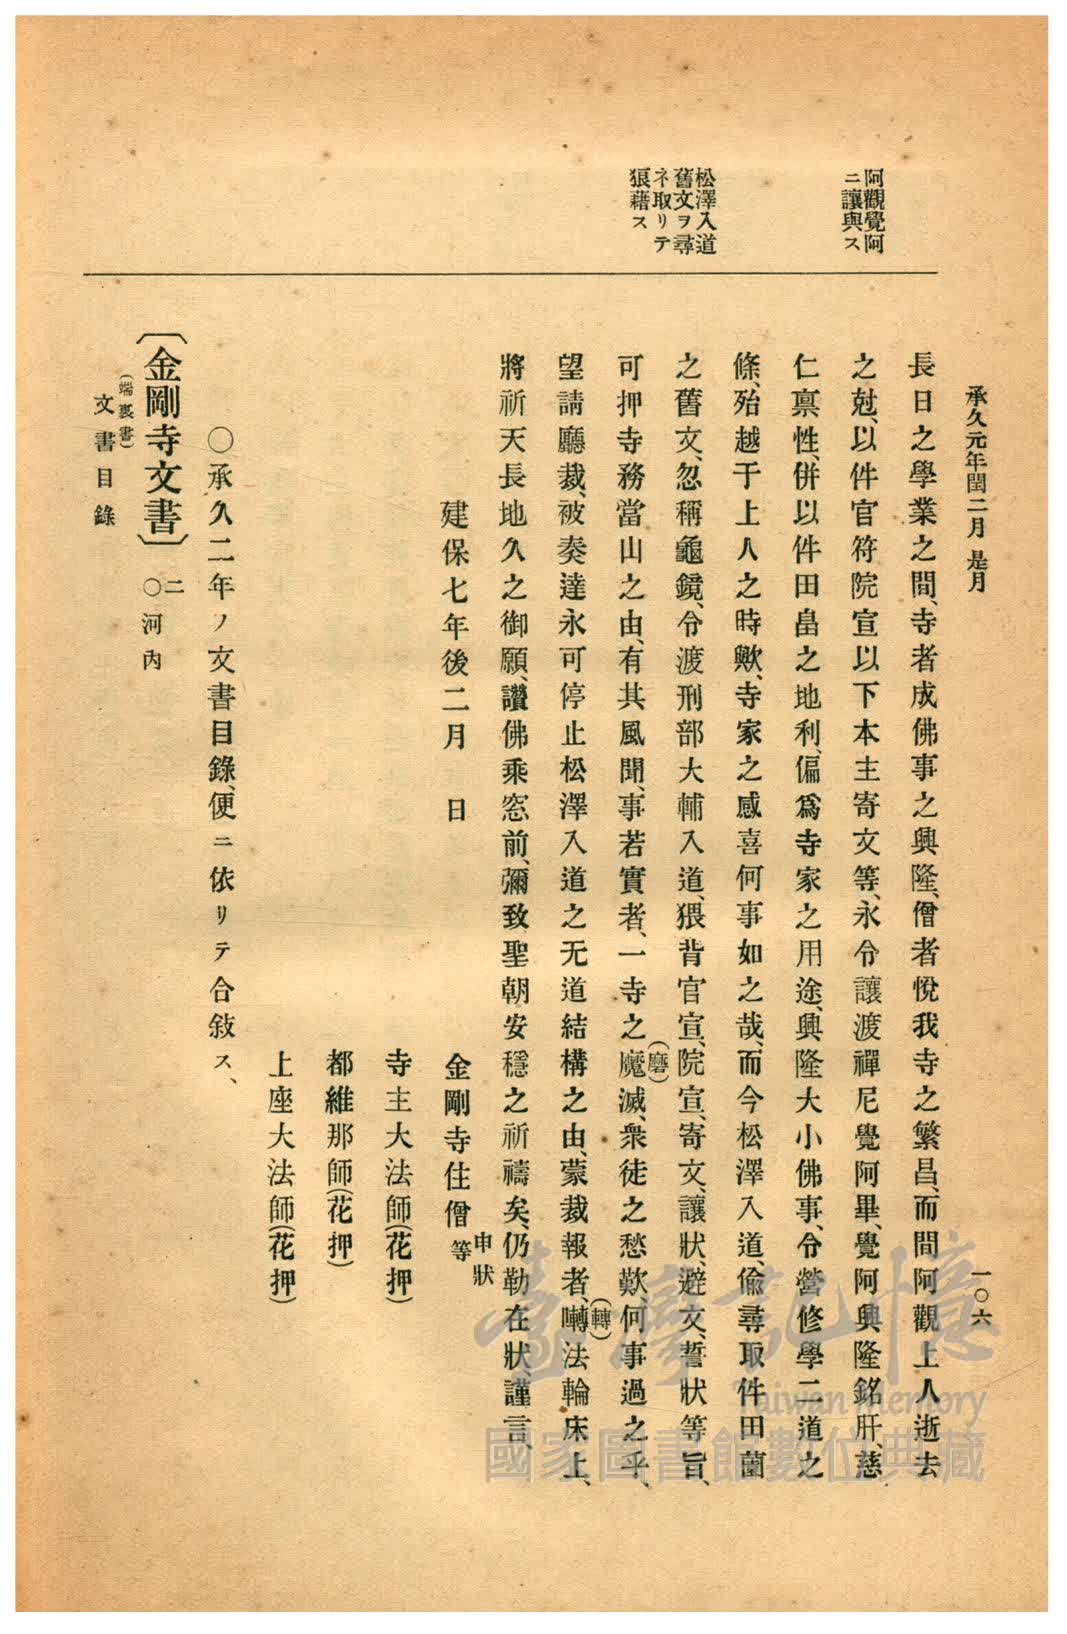 承久元年閏二月 是月
一〇六
阿觀覺阿
ニ讓與ス
松澤入道
舊文ヲ尋
ネ取リテ
狼藉ス
長日之學業之間、寺者成佛事之興隆、僧者悅我寺之繁昌、而間阿觀上人逝去
之尅、以件官符院宣以下本主寄文等、永令讓渡禪尼覺阿畢、覺阿興隆銘肝、慈
仁禀性、併以件田畠之地利、偏爲寺家之用途、興隆大小佛事、令營修學二道之
條、殆越于上人之時歟、寺家之感喜何事如之哉、而今松澤入道、儉尋取件田薗
之舊文、忽稱龜鏡、令渡刑部大輔入道、猥背官宣、院宣、寄文、讓狀、避文、誓狀等旨、
可押寺務當山之由、有其風聞、事若實者、一寺之魔(磨)滅、衆徒之愁歎、何事過之乎、
望請廳裁、被奏達永可停止松澤入道之无道結構之由、蒙裁報者、囀(轉)法輪床上、
將祈天長地久之御願、讚佛乘窓前、彌致聖朝安穩之祈禱矣、仍勒在狀、謹言、
建保七年後二月　日
金剛寺住僧等申狀
寺主大法師(花押)
都維那師(花押)
上座大法師(花押)
〇承久二年ノ文書目錄、便ニ依リテ合敍ス、
〔金剛寺文書〕 二 〇河內
(端裏書)
文書目錄
臺灣記憶
Taiwan Memory
國家圖書館數位典藏